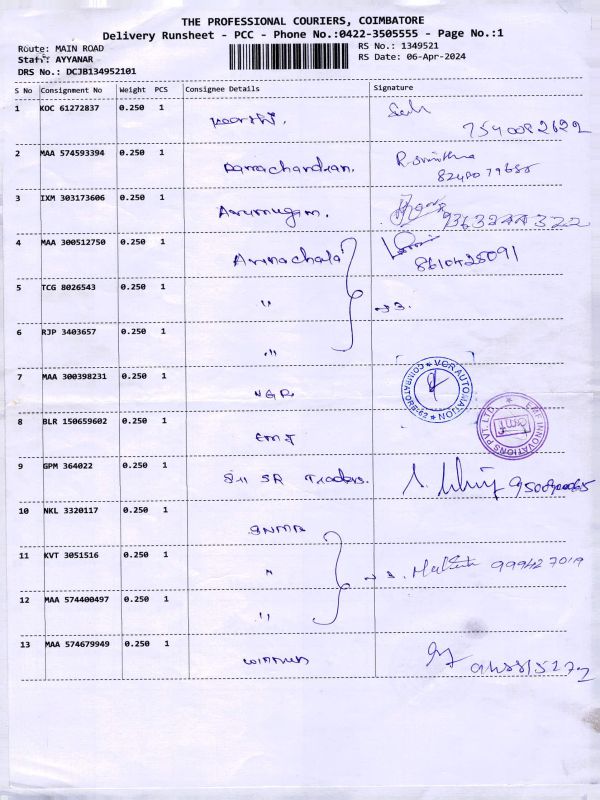 THE PROFESSIONAL COURIERS, COIMBATORE
Delivery Runsheet - PCC - Phone No.:0422-3505555 - Page No.:1
Route: MAIN ROAD
Staff: AYYANAR
DRS No.: DCJB134952101
RS No.: 1349521
RS Date: 06-Apr-2024
S No Consignment No Weight PCS Consignee Details Signature
1 KOC 61272837 0.250 1
2 MAA 574593394 0.250 1 Ramachandran.
3 IXM 303173606 0.250 1 Arumugam.
4 MAA 300512750 0.250 1 Arunachala 8610428091
5 TCG 8026543 0.250 1 "
6 RJP 3403657 0.250 1 "
7 MAA 300398231 0.250 1 VGR
VGR AUTOMATION
COIMBATORE-62
8 BLR 150659602 0.250 1 EMF
EMF INNOVATIONS PVT. LTD.
9 GPM 364022 0.250 1 Sri SR Traders.
10 NKL 3320117 0.250 1
11 KVT 3051516 0.250 1 "
12 MAA 574400497 0.250 1 "
13 MAA 574679949 0.250 1